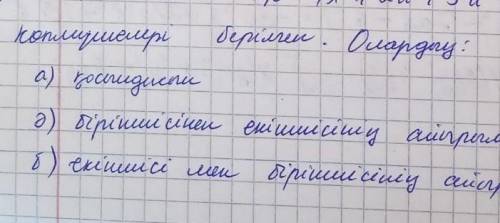 көпмүшелері берілген. Олардың:
а) қосындысын
ә) біріншісінен екіншісінің айырым
б) екіншісі мен біріншісінің айыр